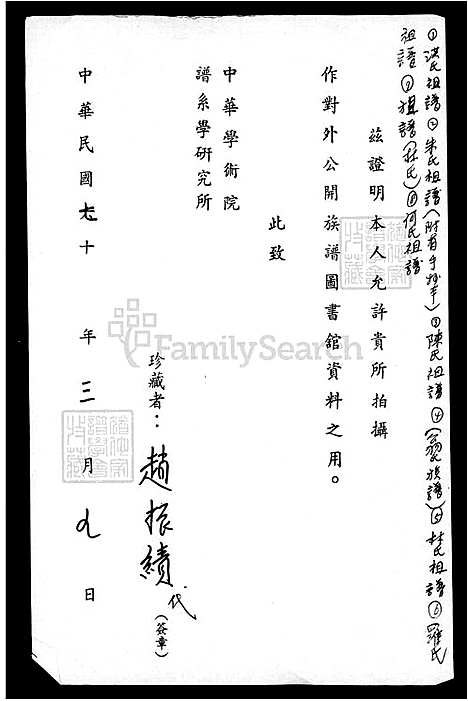 ①洪氏祖譜②朱氏祖譜(附有手抄本)③陳氏祖譜④(翁氏族譜)⑤林氏祖譜⑥羅氏
祖譜⑦族譜(林氏)⑧何氏祖譜
茲證明本人允許貴所拍攝
作對外公開族譜圖書舘資料之用。
此致
中華學術院
譜系學研究所
珍藏者：趙振績代(簽章)
中華民國七十年三月九日
FamilySearch